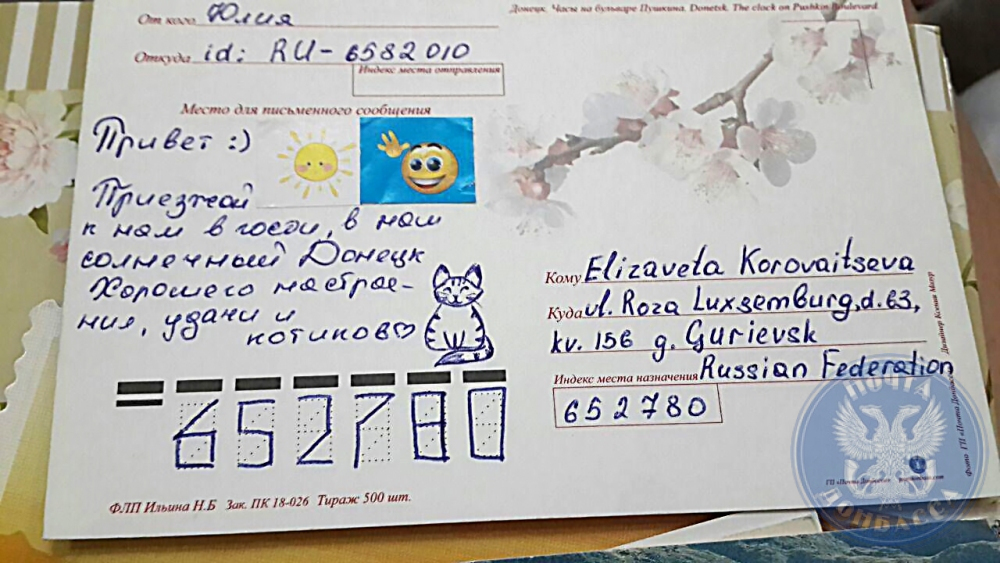 От кого Юлия
Донецк. Часы на бульваре Пушкина. Donetsk. The clock on Pushkin Boulevard.
Откуда id: RU-6582010
Индекс места отправления
Место для письменного сообщения
Привет :)
Приезжай
к нам в гости, в наш
солнечный Донецк
Хорошего настрое-
ния, удачи и
котиков
Кому Elizaveta Korovaitseva
Куда ul. Roza Luxsemburg, d. 63,
kv. 156 g. Gurievsk
Russian Federation
Индекс места назначения
652780
652780
ФЛП Ильина Н.Б Зак. ПК 18-026 Тираж 500 шт.
Дизайнер Ксения Мазур
Фото ГП «Почта Донбасса»
ГП «Почта Донбасса»
ПОЧТА
ДОНБАССА